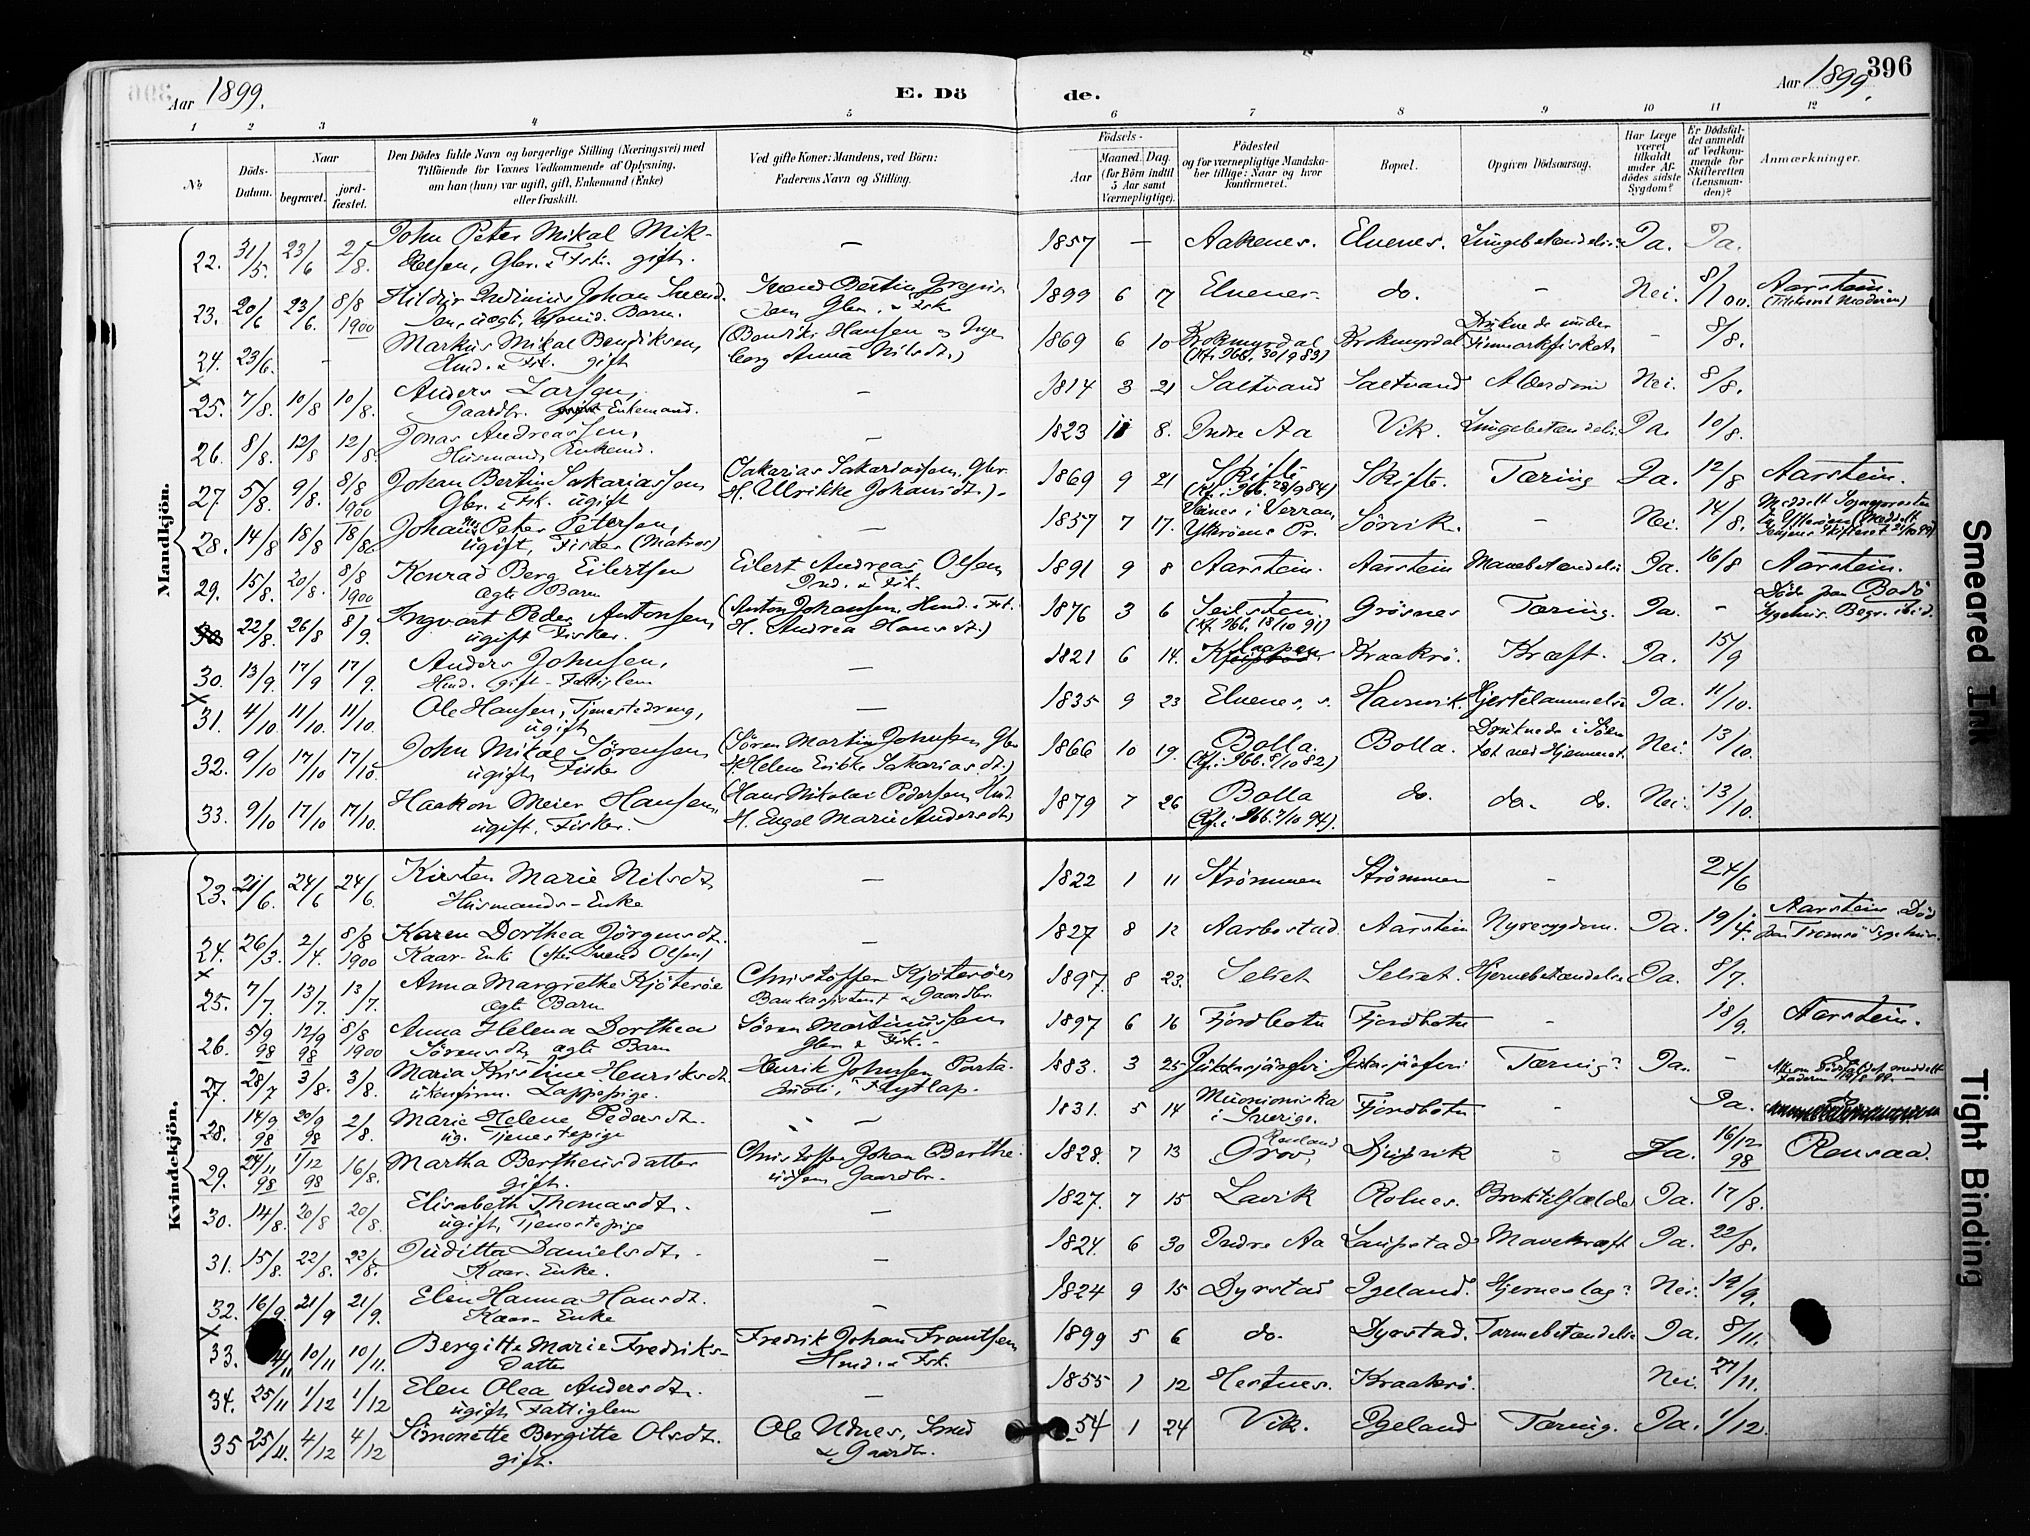 Aar 1899.
E. Dö
de.
Aar 1899.
396
1 2 3 4 5 6 7 8 9 10 11 12
№
Döds-Datum.
Naar
begravet.
jord-fæstet.
Den Dödes fulde Navn og borgerlige Stilling (Næringsvei) med
Tilföiende for Voxnes Vedkommende af Oplysning,
om han (hun) var ugift, gift, Enkemand (Enke)
eller fraskilt.
Ved gifte Koner: Mandens, ved Börn:
Faderens Navn og Stilling.
Födsels-
Aar
Maaned. Dag.
(for Börn indtil
5 Aar samt
Værnepligtige).
Födested
og for værnepligtige Mandska-
ber tillige: Naar og hvor
konfirmeret.
Bopæl.
Opgiven Dödsaarsag.
Har Læge
været
tilkaldt
under Af-
dödes sidste
Sygdom?
Er Dödsfal-
det anmeldt
af Vedkom-
mende for
Skifteretten
(Lensman-
den)?
Anmærkninger.
Mandkjön.
22. 31/5. 23/6 2/8. John Peter Mikal Mik- — 1857 — Aakenes. Elvenes. Lungebetændelse Ja. Ja.
kelsen, Gbr. & Fsk. gift.
23. 20/6 23/6. 8/8 1900 Hildur Indinius Johan Svend- 1899 6 7 Elvenes. do. — Nei. 8/1 00. Aarstein.
sen, uægt. Barn.
24. 23/6. - Markus Mikal Bendiksen, (Bendik Hansen og Inge 1869 6 10 Krokmyrdal Krokmyrdal Druknede under — 8/8.
Hmd. & Fsk. gift borg Anna Nilsdt.) Finmarkfisket.
25. 7/8. 10/8 10/8. Anders Larssen, — 1814 3 21 Saltvand Saltvand Alderdom Nei. 8/8.
Gaardbr. Enkemand.
26. 8/8. 12/8 12/8. Jonas Andreassen, — 1823 11 8. Indre Aa Vik. Lungebetændelse Ja. 10/8.
Husmand, Enkemd.
27. 5/8. 9/8. 8/8 1900 Johan Bertin Sakariassen (Sakarias Sakariassen, Gbr. 1869 9 21 Skifte Skifte. Tæring Ja. 12/8 Aarstein.
Gbr. & Fsk. ugift H. Ulrikke Johansdt.) - (Kf. i Ibb. 28/9 84)
28. 14/8 18/8 18/8. Johannes Peter Petersen, — 1857 7 17. Ytterøens Pr. Sørvik. — Nei. 14/8.
ugift, Fisker (Matros)
29. 15/8. 20/8. 8/8 1900 Konrad Berg Eilertsen Eilert Andreas Olsen 1891 9 8 Aarstein. Aarstein Mavebetændelse Ja. 16/8 Aarstein.
ægte Barn Ind. & Fsk.
22/8. 26/8 8/9. Ingvart Peder Antonsen, (Anton Johansen, Hmd. & Fsk. 1876 3 6 Seilsten. Grøsnes Tæring. Ja. - Døde paa Bodø
ugift Fisker. H. Andrea Hansdt.) (Kf. Ibb. 18/10 91) Sygehus. Begr. ibid.
30. 13/9. 17/9 17/9. Anders Johnsen, — 1821 6 14. Kraakrø. Kræft. Ja. 15/9
Hmd. gift - Fattiglem
31. 4/10 11/10. 11/10. Ole Hansen, Tjenestedreng, — 1835 9 23 Elvenes, s. Havnvik. Hjertelammelse Ja. 11/10.
ugift
32. 9/10 17/10 17/10. John Mikal Sørensen (Søren Martin Johnsen Gbr 1866 10 19. Bolla. Bolla. Druknede i Søen Nei. 13/10.
ugift, Fisker H. Helene Sakariasdt.) (Kf. i Ibb. 8/10 82) tæt ved Hjemmet.
33. 9/10 17/10 17/10. Haakon Meier Hansen, (Hans Nikolai Pedersen, Hmd 1879 7 26 Bolla do. do. do. Nei. 13/10.
ugift. Fisker. H. Engel Marie Andersdt.) (Kf. i Ibb. 7/10 94).
Kvindekjön.
23. 21/6. 24/6 24/6. Kirsten Marie Nilsdt. — 1822 1 11 Strømmen Strømmen - 24/6
Husmands-Enke
24. 26/3. 2/4. 8/8 1900 Karen Dorthea Jørgensdt. — 1827 8 12 Aarbostad. Aarstein Nyresygdom. Ja. 19/4. Aarstein. Død
Kaar-Enke (efter Svend Olsen) paa Tromsø Sygehus.
25. 7/7. 13/7. 13/7. Anna Margrethe Kjøterøe Christoffer Kjøterøes 1897. 8 23. Selset Selset. Hjernebetændelse Ja. 8/7.
ægte Barn Bankassistent & Gaardbr.
26. 5/9 98 12/9 98 8/8 1900 Anna Helena Dorthea Søren Martinussen 1897 6 16 Fjordbotn Fjordbotn - 18/9. Aarstein.
Sørensdt. ægte Barn Gbr. & Fsk. -
27. 28/7 3/8. 3/8. Maria Kristine Henriksdt. Henrik Johnsen Parta- 1883. 3 25 Jukkasjärvi Jukkasjärvi Tæring? Ja. -
ukonfirm. Lappepige. Flytlap.
28. 14/9 98 20/9 98 2/8. Marie Helene Pedersdt. — 1831. 5 14 Muonioniska Fjordbotn - Ja.
ug. Tjenestepige i Sverige.
29. 24/11 98 1/12 98 16/8. Martha Bertheusdatter Christoffer Johan Berthe- 1828. 7 13 Grov, Djupvik Ja. 16/12 98 Rensaa.
gift. ussen Gaardbr.
30. 14/8. 20/8 20/8. Elisabeth Thomasdt. — 1827. 7 15 Lavik Rolnes. Broktilfælde Ja. 17/8.
ugift, Tjenestepige
31. 15/8. 22/8. 22/8. Juditta Danielsdt. — 1824. 6 30 Indre Aa Laupstad Mavekræft Ja. 22/8.
Kaar-Enke.
32. 16/9. 21/9 21/9. Elen Hanna Hansdt. — 1824 9 15 Dyrstad Igeland. Hjerneslag? Nei. 19/9.
Kaar-Enke
33. 4/11 10/11 10/11. Bergitte Marie Fredriks- Fredrik Johan Frantsen 1899 5 6 do. Dyrstad. Tarmebetændelse Ja. 8/11.
datter Hmd. & Fsk.
34. 25/11 1/12 1/12 Elen Olea Andersdt. — 1855 1 12 Hestnes. Kraakrø. Nei. 27/11.
ugift, Fattiglem
35 25/11. 4/12 4/12 Simonette Bergitte Olsdt. Ole Udnes, Smed 54 1 24 Vik. Igeland Tæring. Ja. 1/12.
gift. & Gaardbr.
Smeared Ink
Tight Binding